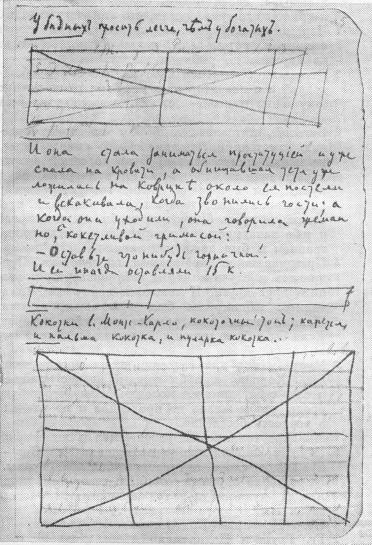 У бѣдныхъ просить легче, чѣмъ у богатыхъ.
И она стала заниматься проституціей и уже
спала на кровати, а обнищавшая тетя уже
ложилась на коврикѣ около ея постели
и вскакивала, когда звонились гости: а
когда они уходили, она говорила жеман
но, съ кокетливой гримасой:
— Оставьте что нибудь горничной.
И ей иногда оставляли 15 к.
Кокотки въ Монте-Карло, кокоточный тонъ;
и пальма кокотка, и пулярка кокотка..